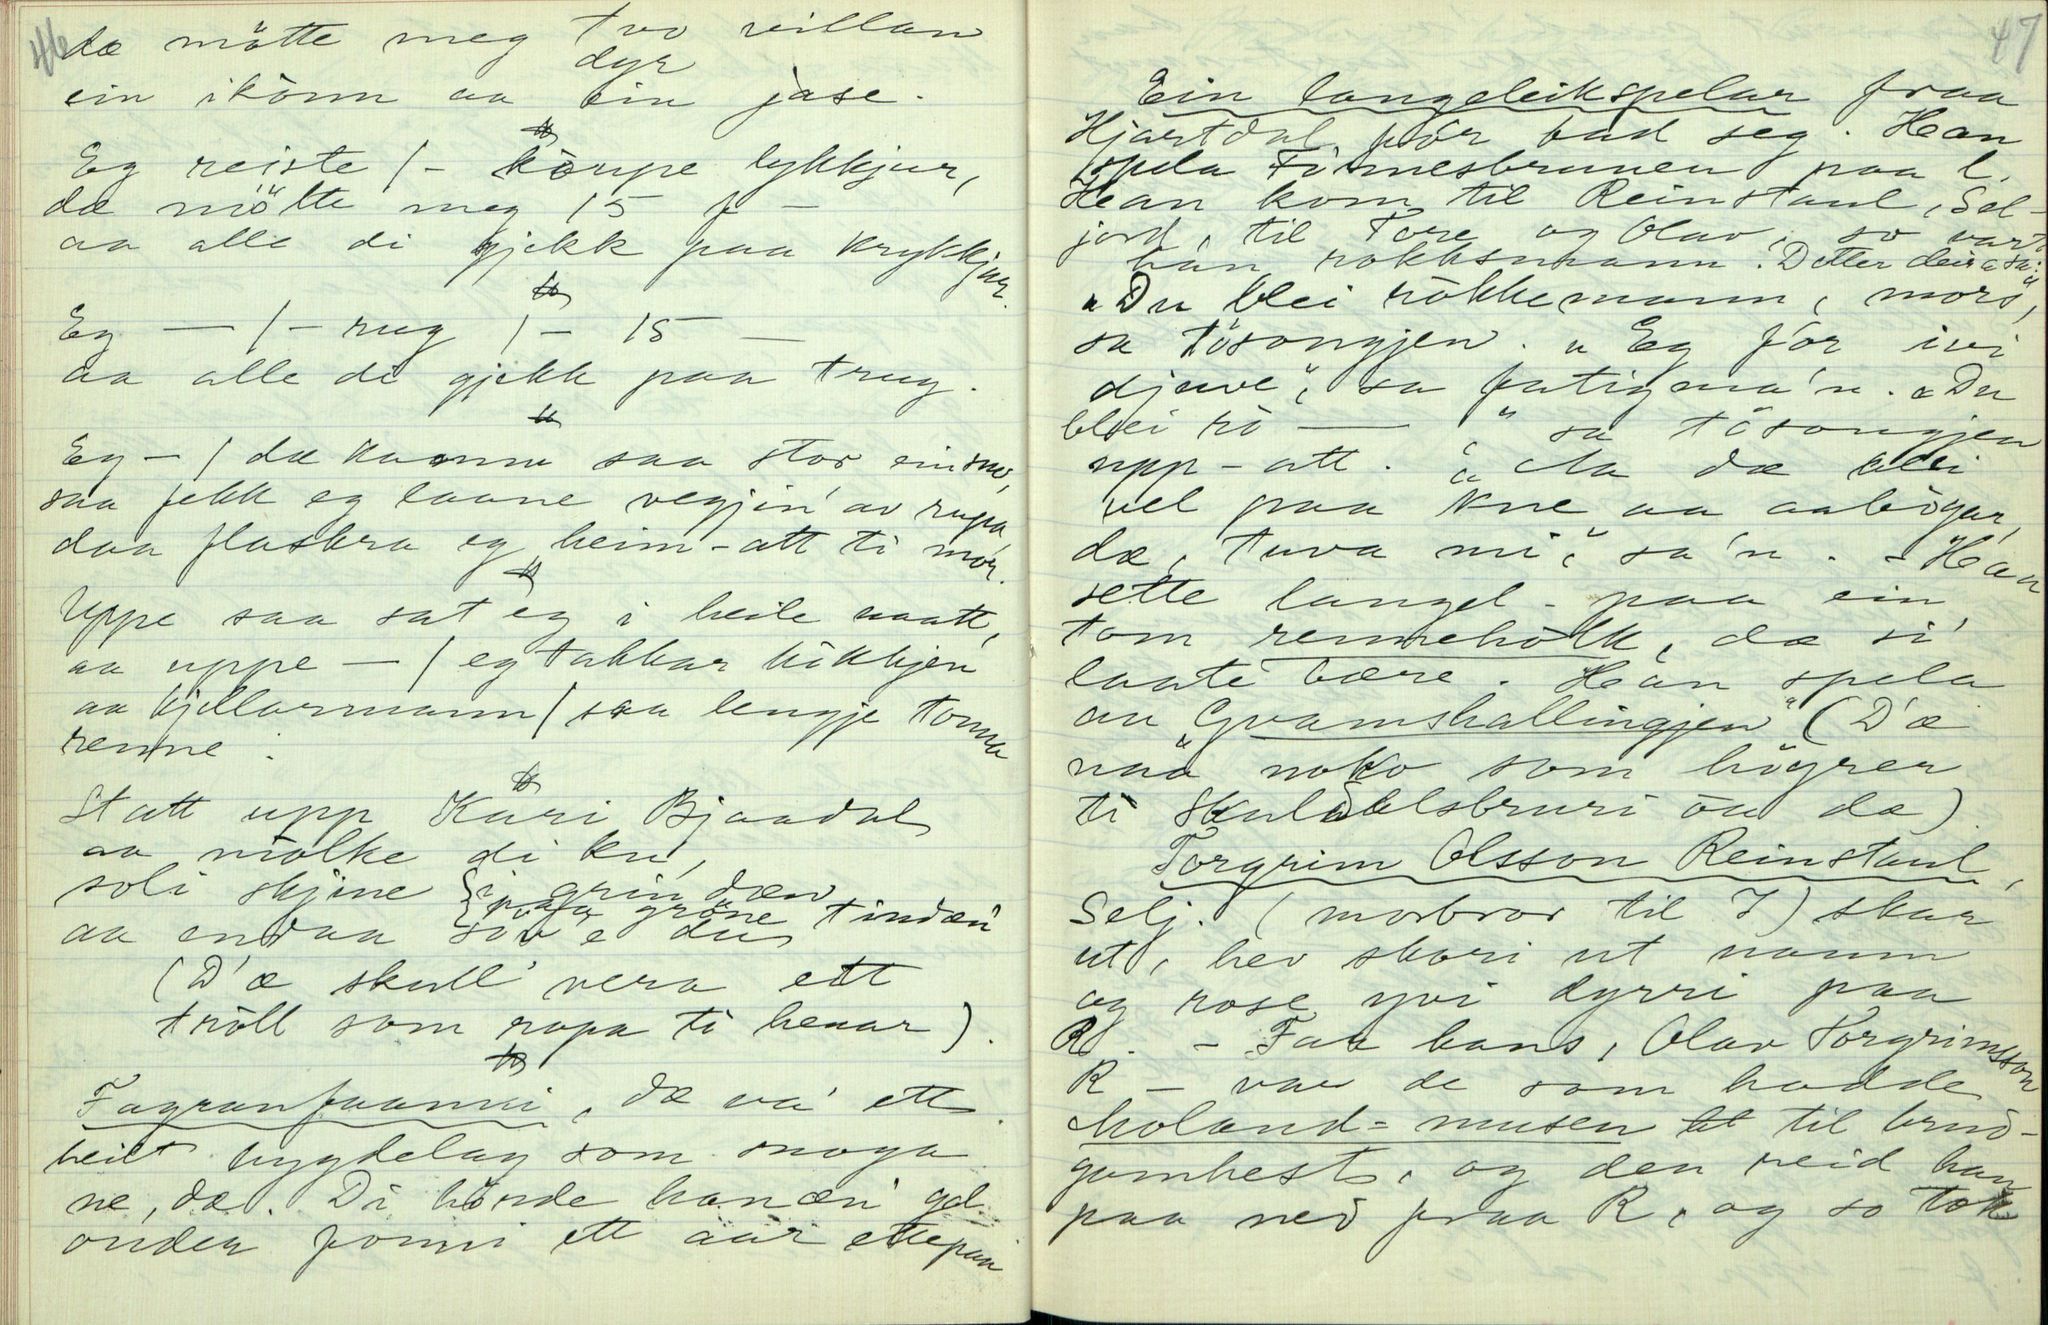 46
dæ mötte meg tvo villan
dyr
ein ikönn aa ein jase.
Eg reiste /- köupe lykkjur,
dæ mötte meg 15 f –
aa alle di gjekk paa krykkjur.
Eg — /- rug / – 15 —
aa alle di gjekk paa trug.
Eg – / dæ kaamm saa stor ein snø,
saa fekk eg laane vegjin' av rupa,
daa flaskra eg heim-att ti mor.
Uppe saa sat eg i heile naatt,
aa uppe — / eg takkar kökkjen
aa kjellarmann / saa lengje tonna
renne.
Statt upp Kari Bjaadal
aa mölke di ku,
soli skjine { i grindæn
{ paa gröne tindæn
aa endaa söv'e du
(D'æ skull' vera ett
tröll som ropa ti henar).
Fagranfaanni, dæ va' ett
heilt bygdelag som snoga
ne, dæ. Di hörde hanæn' gol
onder fonni ett aar ettepaa
47
Ein langeleikspelar fraa
Hjartdal før bad seg. Han
spela Förnesbrunen paa l.
Han kom til Reinstaul, Sel-
jord, til Tore og Olav, so vart
han rokksmann. Detter dei a sa:
"Du blei rökkemann, mors",
sa tösongjen. "Eg for ivi
djuve", sa fatigma'n. "Du
blei rö —" sa tösongjen
upp-att. "Aa dæ blei
vel paa kne aa aabögar,
dæ, tuva mi", sa'n. – Han
sette langel- paa ein
tom rennehólk, dæ si'
laate bære. Han spela
au "Gvamshallingjen" (D'æ
naa noko som högrer
ti Skuldalsbruri óu dæ).
Torgrim Olsson Reinstaul,
Selj. (morbror til T) skar
ut, hev skori ut namn
og rose yvi dyrri paa
R. – Far hans, Olav Torgrimsson
R – var de som hadde
Moland-musen til brud-
gomhest, og den reid han
paa ned fraa R, og so tok